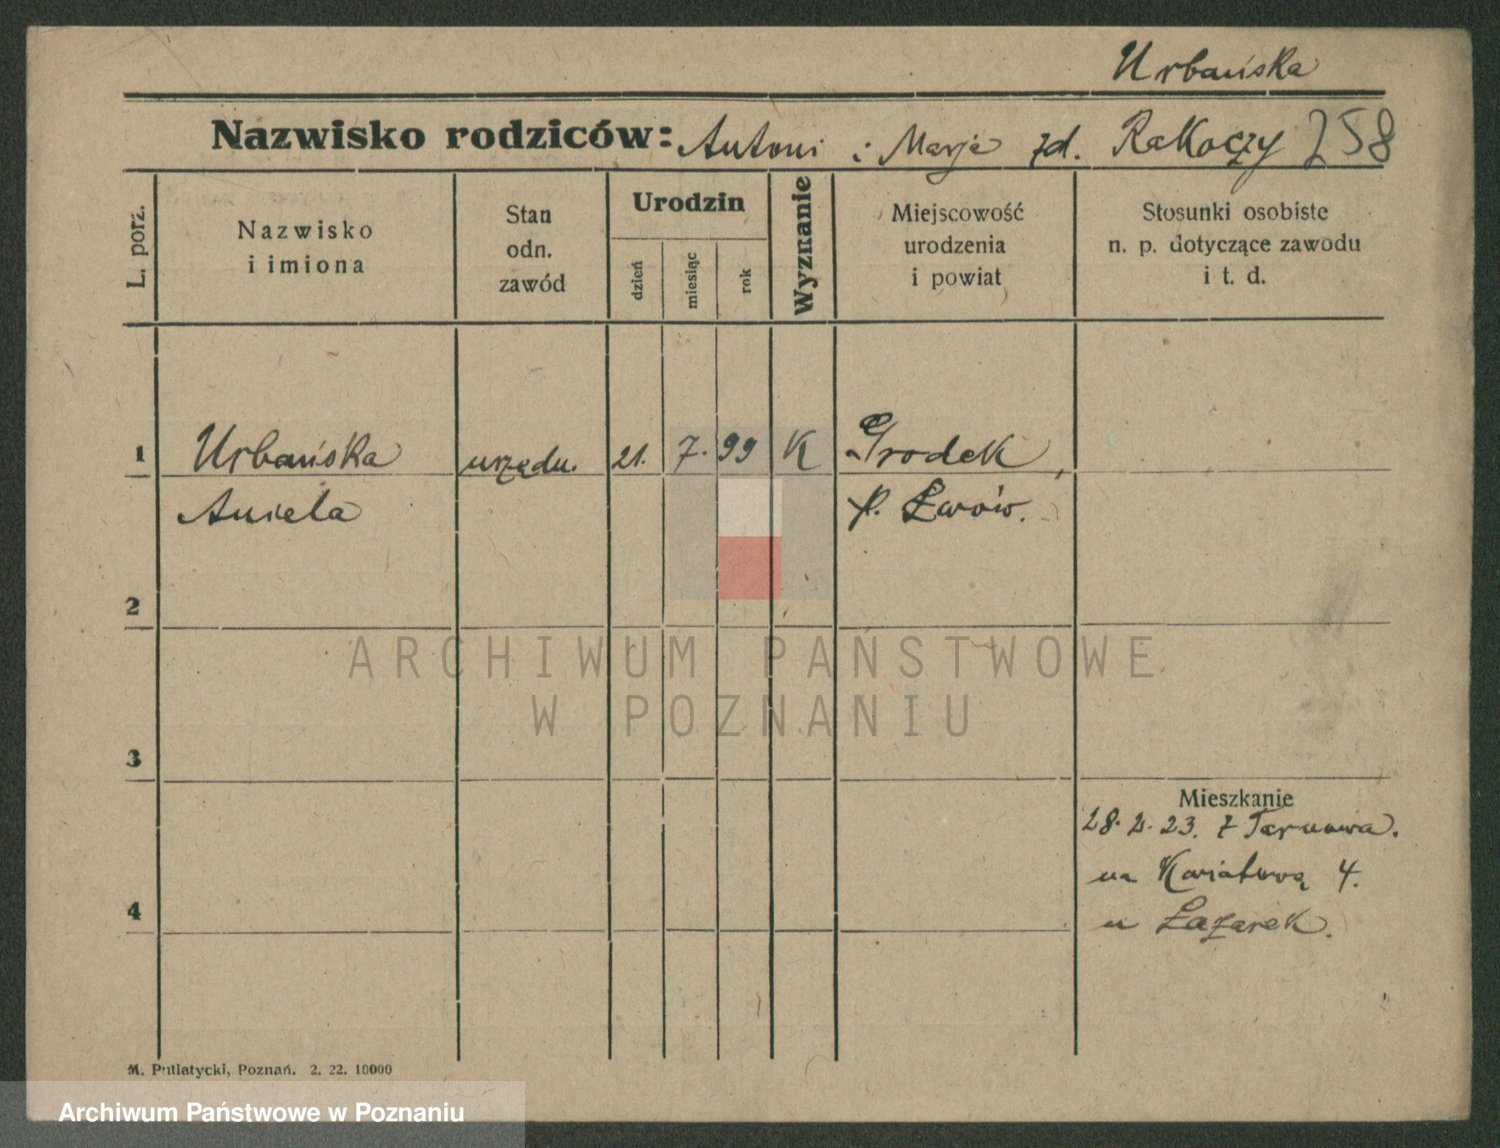 Urbańska
Nazwisko rodziców: Antoni i Marja zd. Rakoczy 258
L. porz.
Nazwisko
i imiona
Stan
odn.
zawód
Urodzin
dzień
miesiąc
rok
Wyznanie
Miejscowość
urodzenia
i powiat
Stosunki osobiste
n. p. dotyczące zawodu
i t. d.
1 Urbańska urzędn. 21. 7. 99 K Grodek,
Aniela p. Lwów.
2
3
Mieszkanie
28. 2. 23. z Tarnowa.
na Kwiatową 4.
4
u Łazarek.
M. Putiatycki, Poznań. 2. 22. 10000
ARCHIWUM PAŃSTWOWE
W POZNANIU
Archiwum Państwowe w Poznaniu